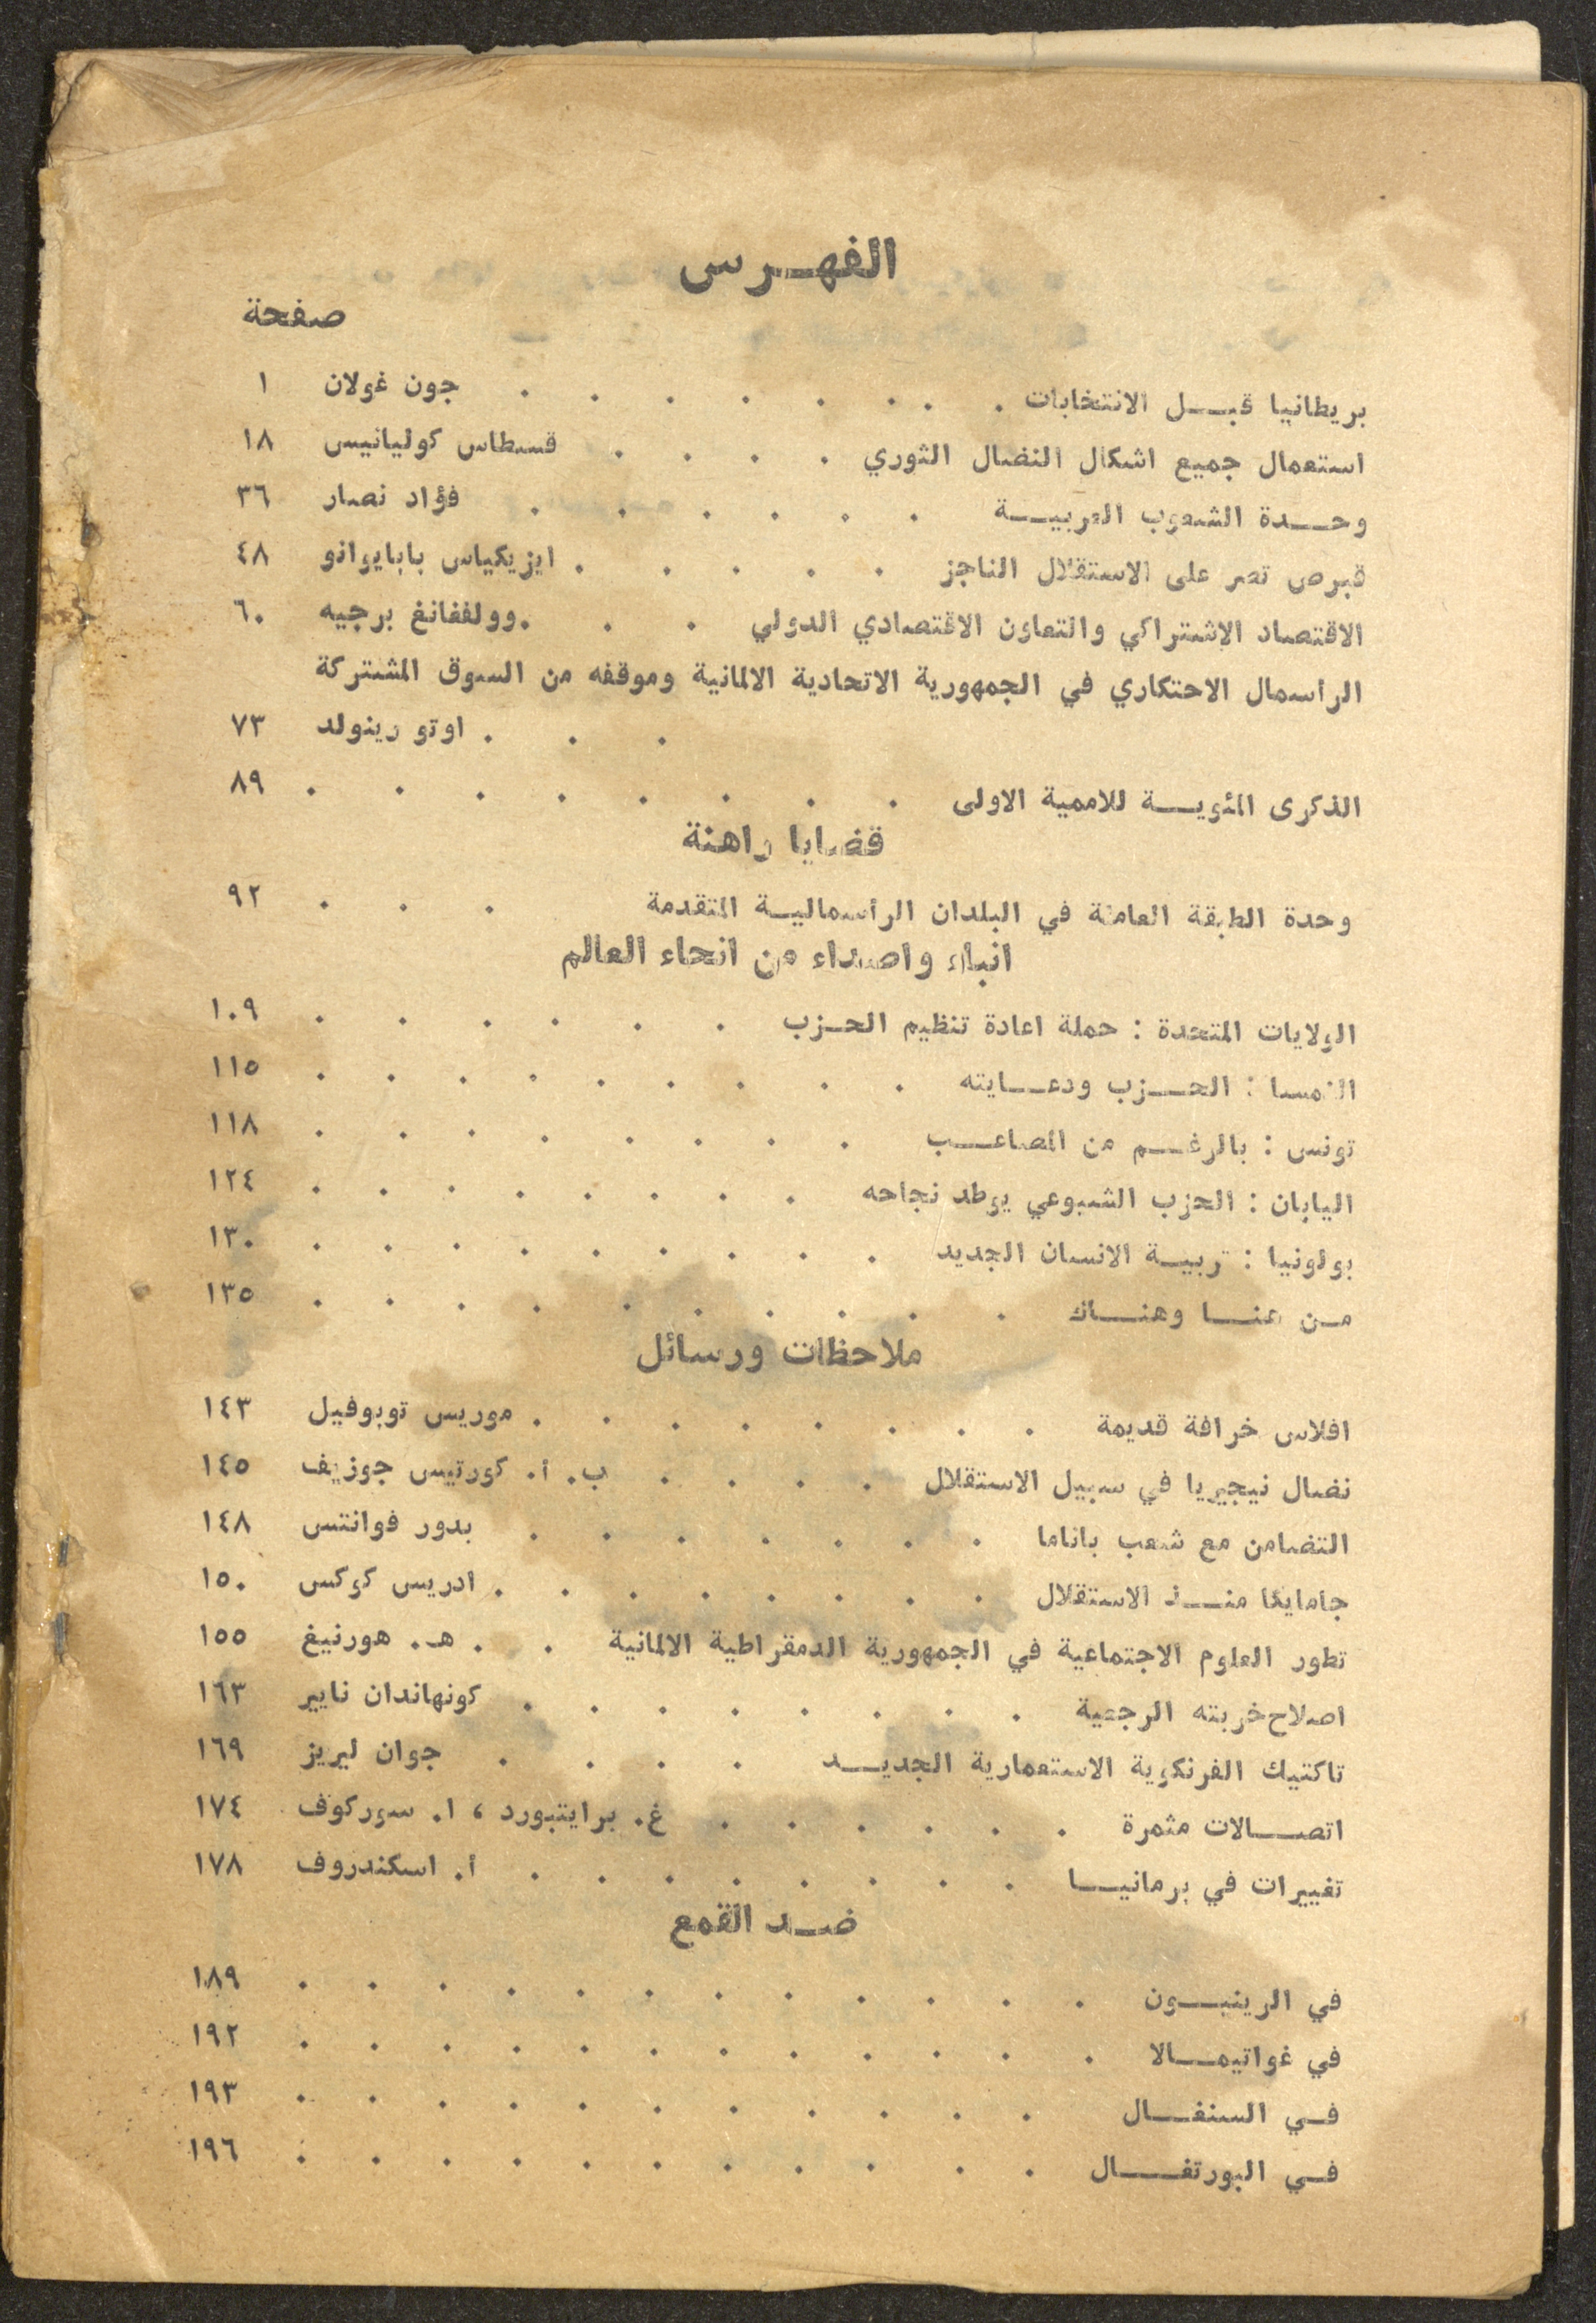 الفهرس
صفحة
بريطانيا قبل الانتخابات . . . . . . . . جون غولان ١
استعمال جميع اشكال النضال الثوري . . . . قسطاس كوليانيس ١٨
وحدة الشعوب العربية . . . . . . فؤاد نصار ٣٦
قبرص تصر على الاستقلال الناجز . . . . . ايزيكياس بابايوانو ٤٨
الاقتصاد الاشتراكي والتعاون الاقتصادي الدولي . . . وولففانغ برجيه ٦٠
الرأسمال الاحتكاري في الجمهورية الاتحادية الالمانية وموقفه من السوق المشتركة
. . . اوتو رينولد ٧٣
الذكرى المئوية للاممية الاولى . . . . . . . . ٨٩
قضايا راهنة
وحدة الطبقة العاملة في البلدان الرأسمالية المتقدمة . . . ٩٢
انباء واصداء من انحاء العالم
الولايات المتحدة : حملة اعادة تنظيم الحزب . . . . . . ١٠٩
النمسا : الحزب ودعايته . . . . . . . . . ١١٥
تونس : بالرغم من المصاعب . . . . . . . . ١١٨
اليابان : الحزب الشيوعي يوطد نجاحه . . . . . . . . ١٢٤
بولونيا : تربية الانسان الجديد . . . . . . . . . ١٣٠
من هنا وهناك . . . . . . . . . ١٣٥
ملاحظات ورسائل
افلاس خرافة قديمة . . . . . . . . موريس توبوفيل ١٤٣
نضال نيجيريا في سبيل الاستقلال . . . . ب. أ. كورتيس جوزيف ١٤٥
التضامن مع شعب باناما . . . . . . . بدور فوانتس ١٤٨
جامايكا منذ الاستقلال . . . . . . . . ادريس كوكس ١٥٠
تطور العلوم الاجتماعية في الجمهورية الدمقراطية الالمانية . . ه. هورنيغ ١٥٥
اصلاح خربته الرجعية . . . . . . . . كونهاندان نايير ١٦٣
تاكتيك الفرنكوية الاستعمارية الجديد . . . . جوان ليريز ١٦٩
اتصالات مثمرة . . . . . . غ. برايتبورد ، ا. سوركوف ١٧٤
تغييرات في برمانيا . . . . . . . . أ. اسكندروف ١٧٨
ضد القمع
في الرينبون . . . . . . . . . . . . ١٨٩
في غواتيمالا . . . . . . . . . . . . ١٩٢
في السنغال . . . . . . . . . . . ١٩٣
في البورتغال . . . . . . . . . . . ١٩٦